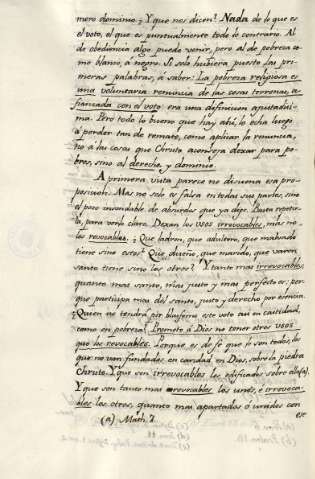 mero dominio. Y que nos dicen? Nada de lo que es
el voto, el que es puntualmente todo lo contrario. Al
de obediencia algo puede venir, pero al de pobreza co
mo blanco, a negro. Si solo hubiera puesto las pri-
meras palabras, á saber: La pobreza religiosa es
una voluntaria renuncia de las cosas terrenas, a-
fianzada con el voto: era una definicion ajustadisi-
ma. Pero todo lo bueno que hay ahí, lo echa luego
á perder tan de remate, como aplicar la renuncia,
no á las cosas que Christo aconseja dexar para po-
bres, sino al derecho y dominio.
A primera vista parece no disuena esa pro-
posicion. Mas no solo es falsa en todas sus partes, sino
el pozo insondable de absurdos que ya dige. Basta repetir-
lo, para verlo claro. Dexan los usos irrevocables, mas no
los revocables. ¿Que ladron, que adultero, que malvado
tiene sino estos? Que dueño, que marido, que varon
santo tiene sino los otros? Y tanto mas irrevocables,
quanto mas santo, mas justo y mas perfecto es: por
que participa mas del santo, justo y derecho por esencia.
¿Quien no tendrá por blasfemo este voto asi en castidad,
como en pobreza? Prometo á Dios no tener otros usos
que los revocables. Porque es de fé que lo son todos, los
que no van fundados en caridad en Dios, sobre la piedra
Christo. Y que son irrevocables los edificados sobre ella (a).
Y que son tanto mas revocables los unos, e irrevoca-
bles los otros, quanto mas apartados ó unidos con
ese
(a) Math. 7.